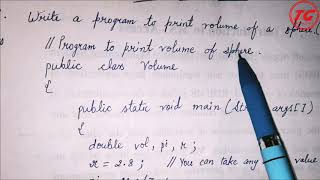 TG
Write a program to print volume of a sphere.
// Program to print volume of sphere.
public class Volume
{
public static void main (String args[])
{
double vol, pi, r;
r = 2.8; // You can take any value